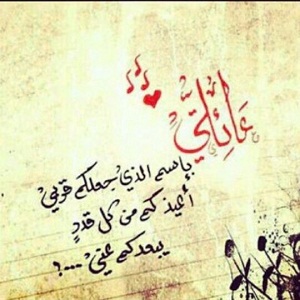 عَائِلَتِيْ
بإسم الذيْ جعلكم قوتيْ
أعيذ كم من كل قدرٍ
يبعدكم عنيْ ....؟